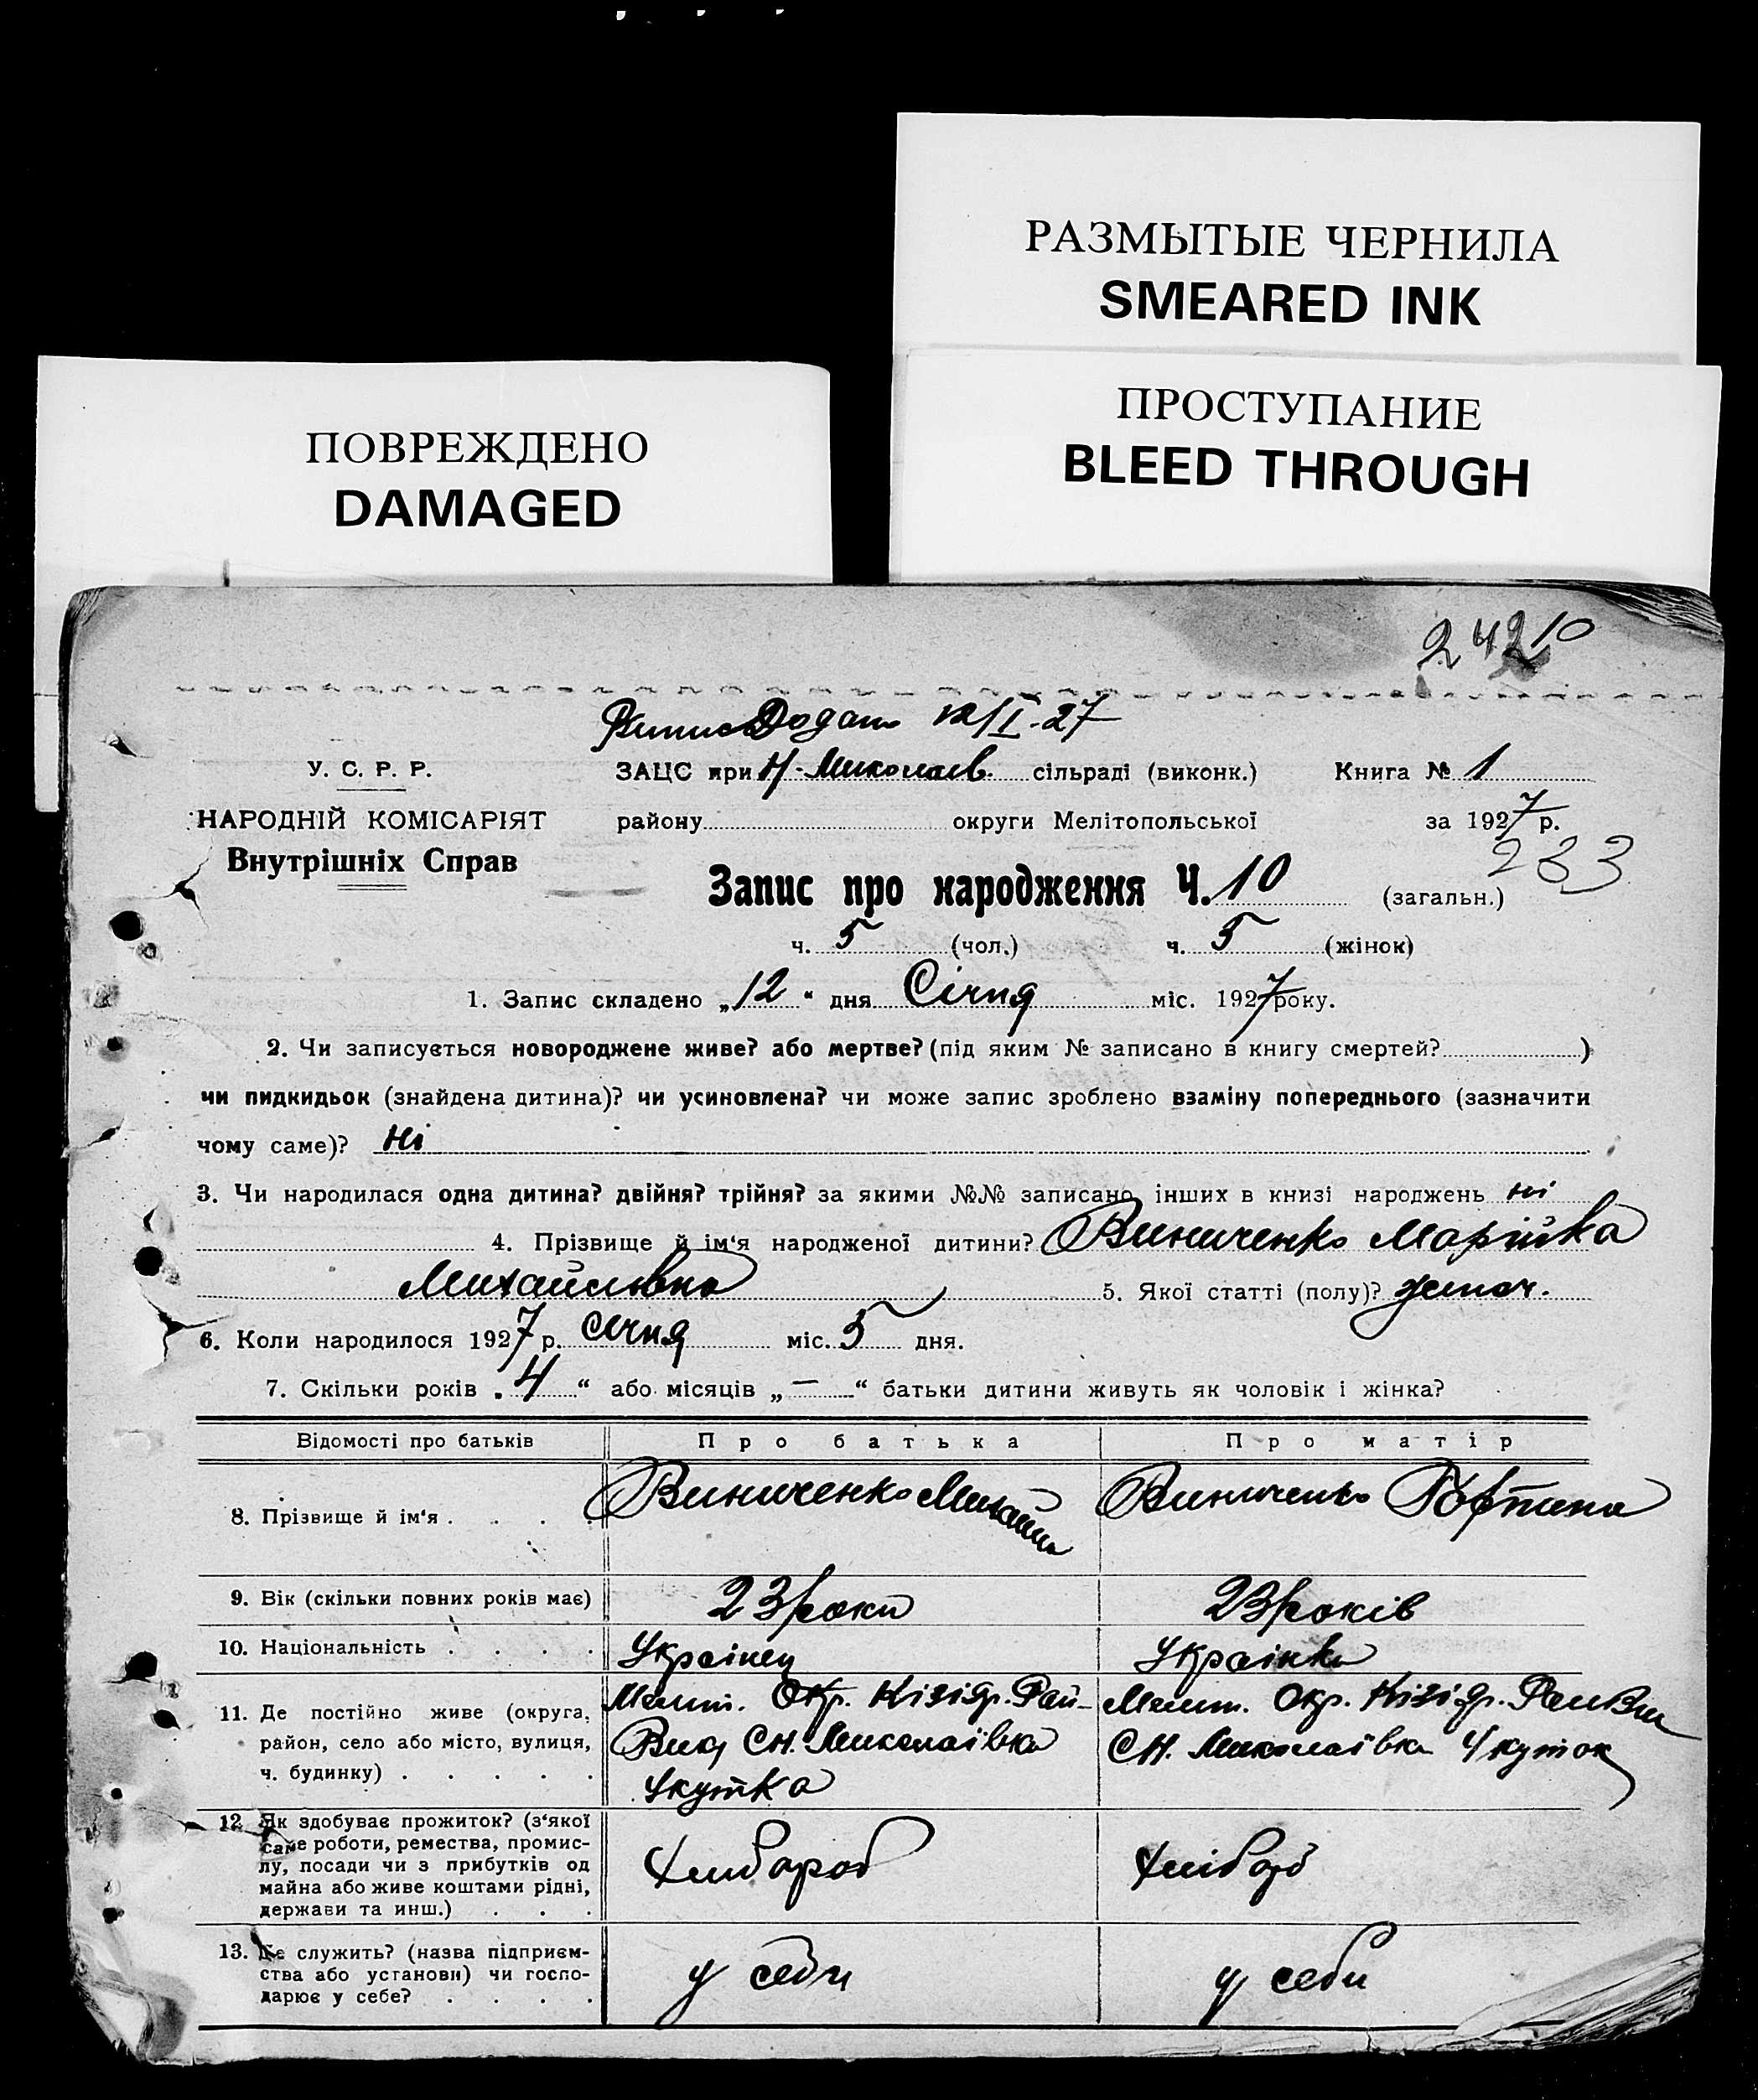 РАЗМЫТЫЕ ЧЕРНИЛА
SMEARED INK
ПРОСТУПАНИЕ
BLEED THROUGH
ПОВРЕЖДЕНО
DAMAGED
242 10
12/I-27
У. С. Р. Р.
ЗАЦС при Н-Миколаєв. сільраді (виконк.) Книга № 1
НАРОДНІЙ КОМІСАРІЯТ
району округи Мелітопольської за 1927 р.
Внутрішніх Справ
233
Запис про народження Ч. 10 (загальн.)
ч. 5 (чол.) ч. 5 (жінок)
1. Запис складено „12“ дня Січня міс. 1927 року.
2. Чи записується новороджене живе? або мертве? (під яким № записано в книгу смертей? )
чи пидкидьок (знайдена дитина)? чи усиновлена? чи може запис зроблено взаміну попереднього (зазначити
чому саме)? Ні
3. Чи народилася одна дитина? двійня? трійня? за якими №№ записано інших в книзі народжень ні
4. Прізвище й ім‘я народженої дитини? Виниченко Марійка
Михайлівна 5. Якої статті (полу)? жіноч.
6. Коли народилося 1927 р. Січня міс. 5 дня.
7. Скільки років „4“ або місяців „—“ батьки дитини живуть як чоловік і жінка?
Відомості про батьків Про батька Про матір
8. Прізвище й ім‘я . . . . Виниченко Михайло Виниченко
9. Вік (скільки повних років має) 23 роки 23 років
10. Національність . . . . Українец Українка
11. Де постійно живе (округа, район, село або місто, вулиця, ч. будинку) . . . . . Меліт. Окр. Кізіяр. Рай- С Н. Миколаївка Меліт. Окр. Кізіяр. С Н. Миколаївка
12. Як здобуває прожиток? (з‘якої саме роботи, ремества, промислу, посади чи з прибутків од майна або живе коштами рідні, держави та инш.) . . . Хлібороб Хлібор
13. Де служить? (назва підприємства або установи) чи господарює у себе? . . . . у себи у себи